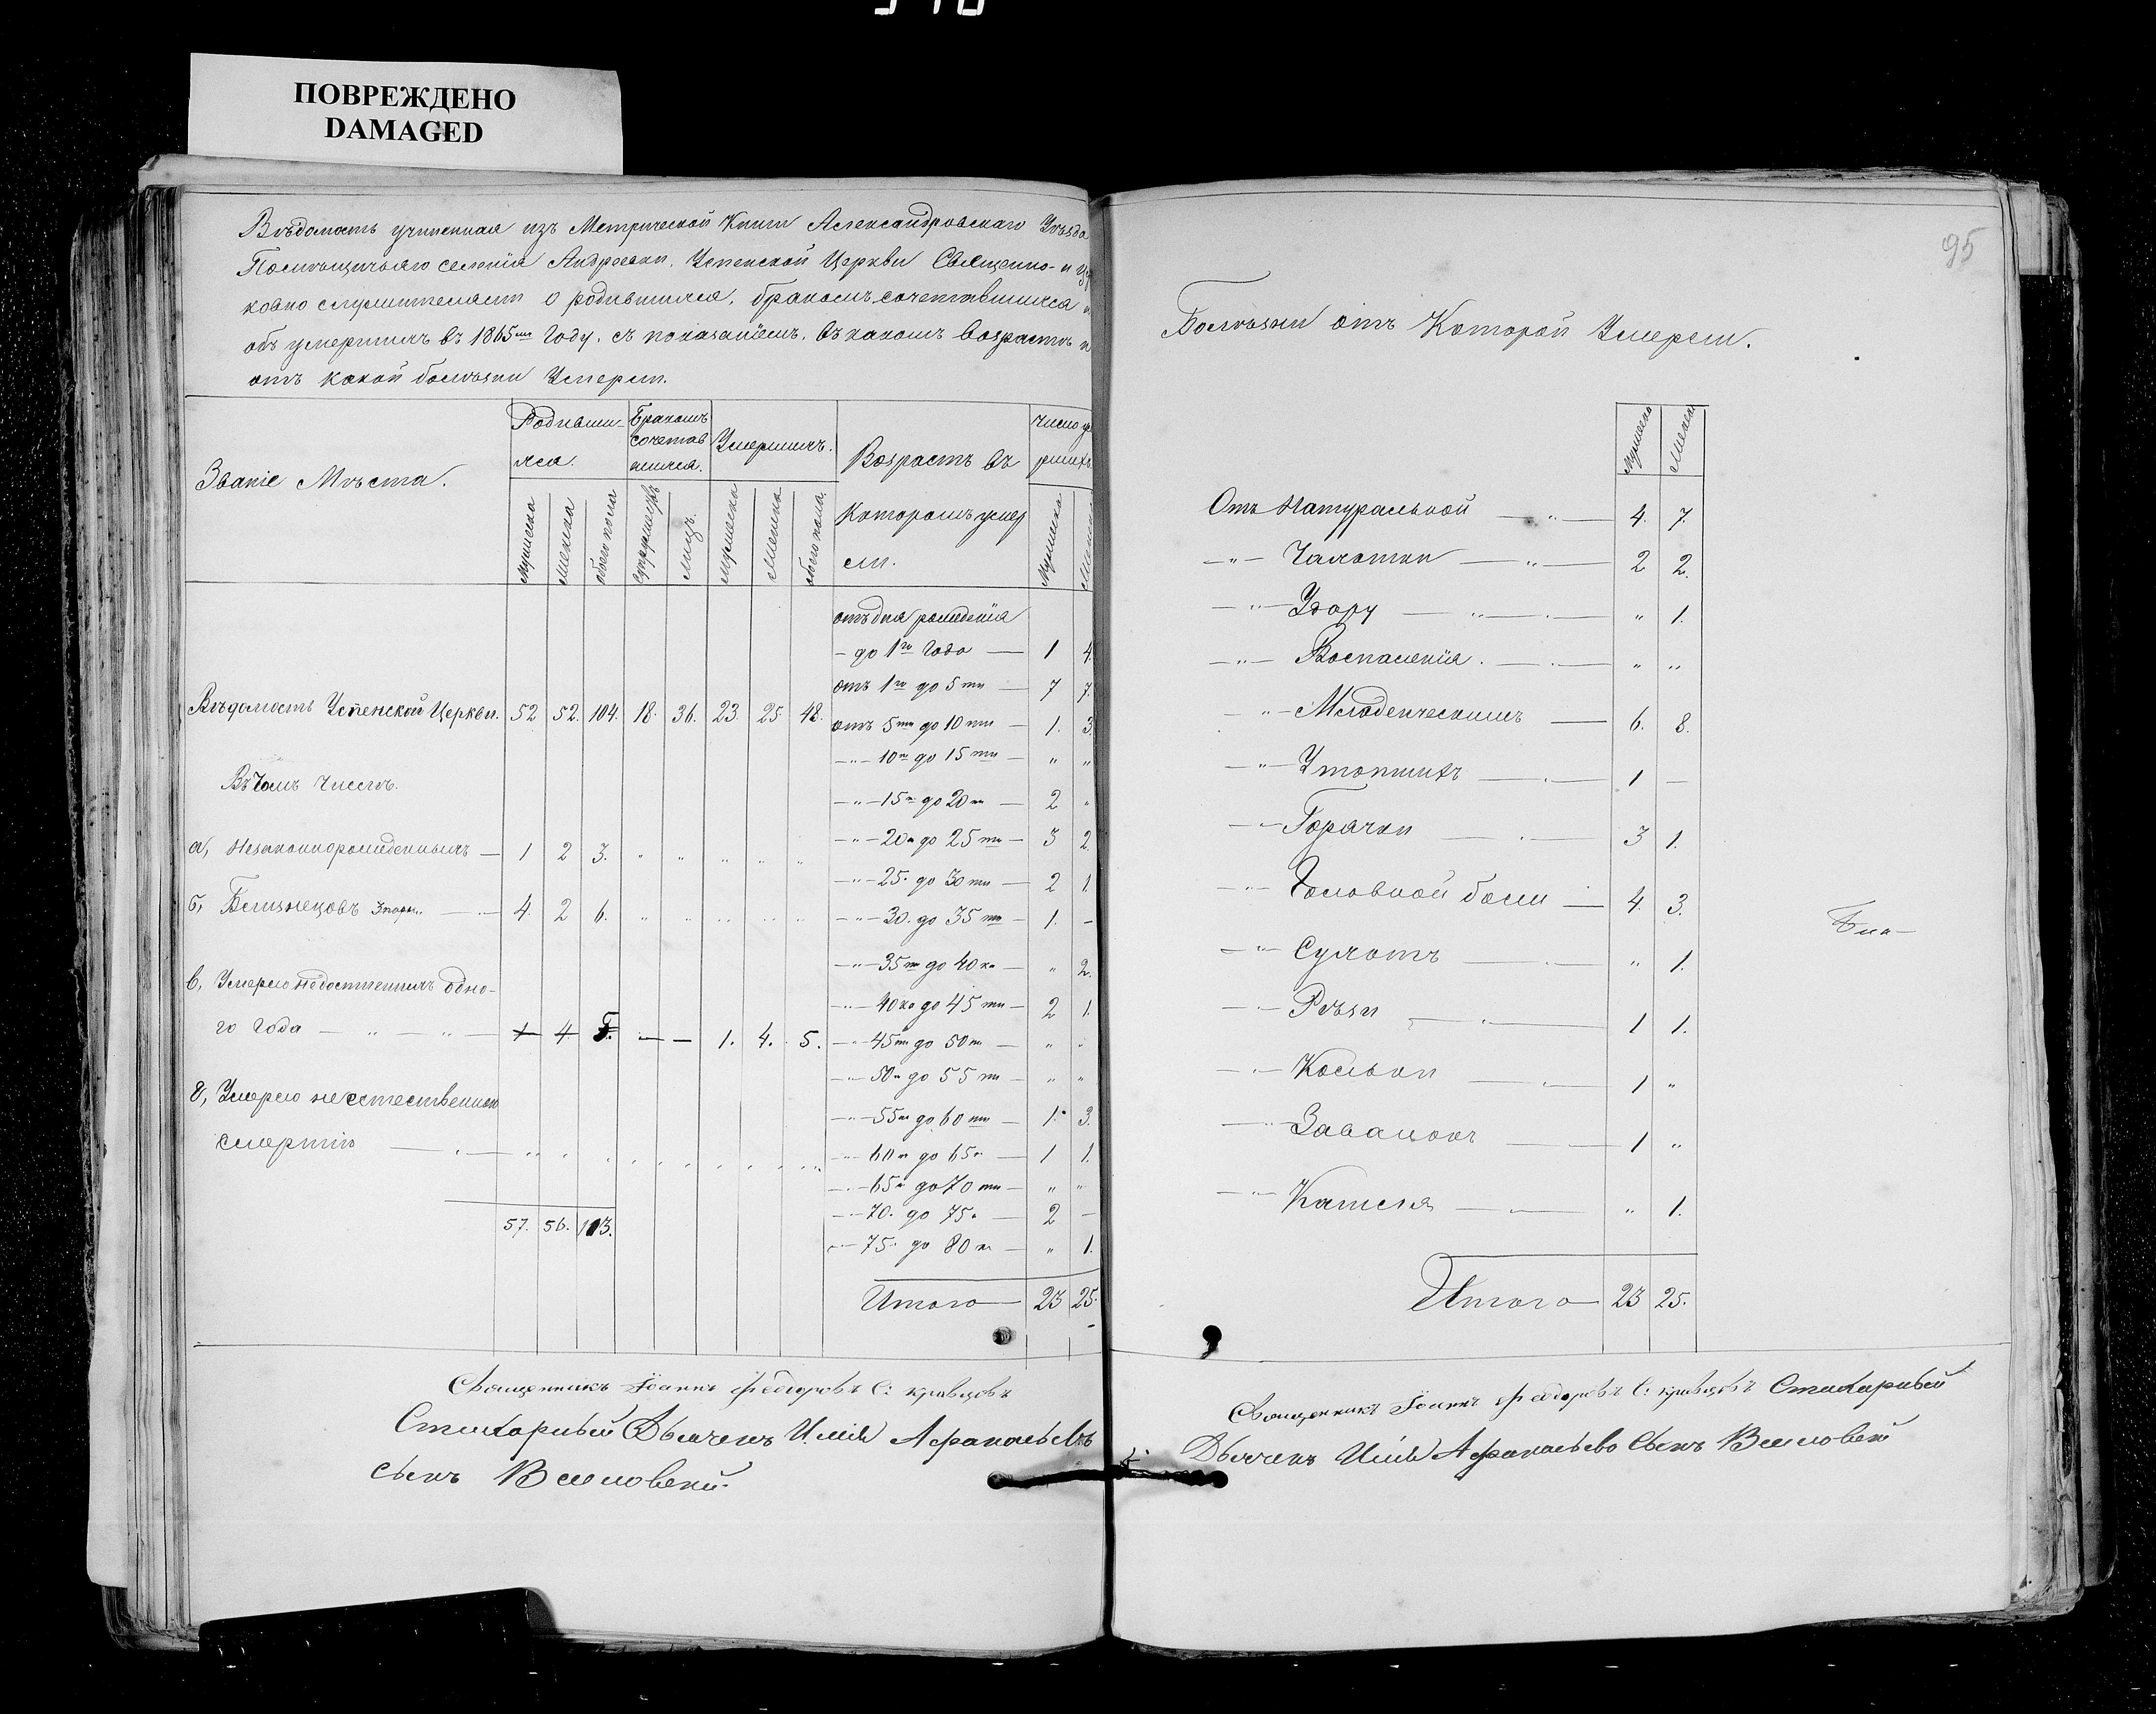 ПОВРЕЖДЕНО
DAMAGED
Вѣдомость учиненная изъ Метрической Книги Александровскаго Уѣзда
Помѣщичьяго селенія Андреевки, Успенской Церкви Священно- и Цер
ковно служителями о родившихся, бракомъ сочетавшихся и
объ умершихъ въ 1865мъ Году, съ показаніемъ, въ какомъ возрастѣ и
отъ какой болѣзни Умерли.
Званіе Мѣста.
Родивши-
яся.
Бракомъ
сочетав
шихся.
Умершихъ.
Возрастъ въ
Которомъ умер
ли.
Число уме
ршихъ
Мужеска
Женска
обоего пола
Супружествъ
Лицъ.
Мужеска
Женска
обоего пола.
Мужеска
Женска
отъ дня рожденія
- до 1го Года — 1 4.
отъ 1го до 5ти — 7 7.
Вѣдомость Успенской Церкви. 52 52. 104. 18. 36. 23. 25. 48.
отъ 5ти до 10ти — 1. 3.
—"— 10ти до 15ти — " "
Въ томъ Числѣ.
—"— 15ти до 20ти — 2 "
а, Незаконнорожденныхъ — 1 2 3. " " " " "
—"— 20ти до 25ти — 3 2.
—"— 25. до 30ти — 2 1
б, Близнецовъ — 4. 2 6. " " " " "
—"— 30. до 35ти — 1. -
в, Умерло недостигшихъ одно-
—"— 35ти до 40ка — " 2.
го Года — " — " — 1 4 5. — — 1. 4. 5.
—"— 40ка до 45ти — 2 1.
—"— 45ти до 50ти — " "
—"— 50ти до 55ти — " "
г, Умерло неестественною
—"— 55ти до 60ти — 1. 3.
смертію — " —
—"— 60ти до 65ти — 1 1.
—"— 65ти до 70ти — " "
—"— 70. до 75. — 2 —
57. 56. 113.
—"— 75. до 80ти — " 1.
Итого — 23 25.
Священникъ Іоаннъ Федоровъ С: Кравцовъ
Стихарный Дьячекъ Илія Афанасьевъ
сынъ
95
Болѣзни отъ Которой Умерли.
Мужеска
Женска
Отъ Натуральной — " — 4. 7.
—"— Чахотки — " — 2 2.
—"— Удару — " — " 1.
—"— Воспаленія. — " — " "
—"— Младенческимъ — 6. 8.
—"— Утопшихъ — 1 —
—"— Горячки — 3 1.
—"— Головной боли — 4. 3.
—"— Сухотъ — " 1.
—"— Рѣзи — " — 1 1.
—"— Кольки — 1 "
—"— — 1 "
—"— Кашля — " 1.
Итого — 23 25.
Священникъ Іоаннъ Федоровъ С: Кравцовъ Стихарный
Дьячекъ Илія Афанасьево Сынъ